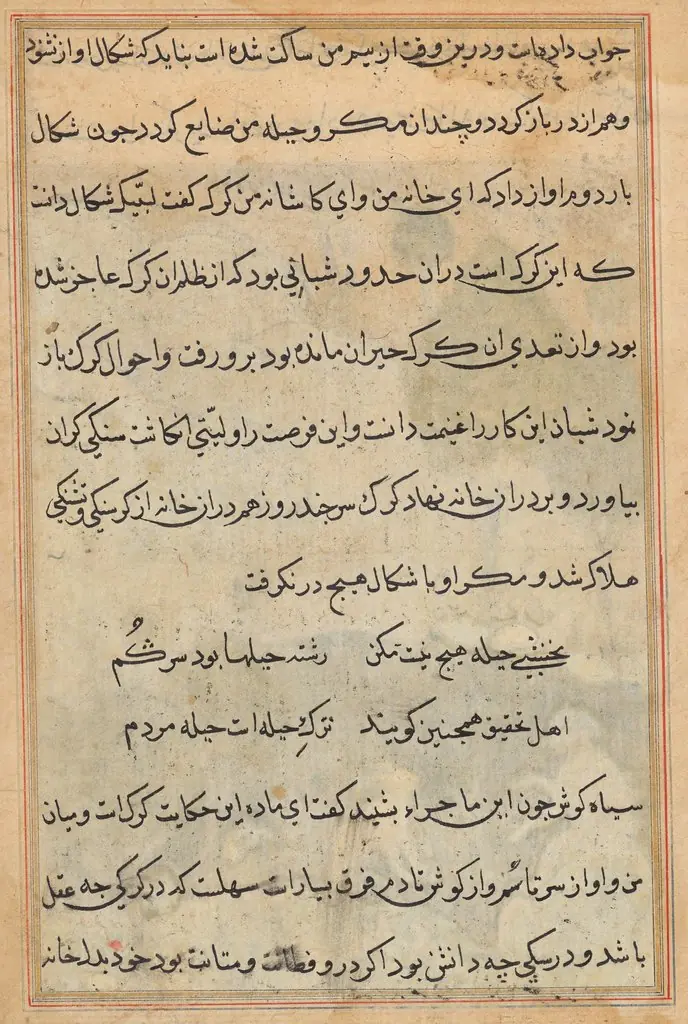 جواب داده است و درین وقت از بیم من ساکت شده است بباید که شکال اواز نشنود
و هم از در باز کردد و چندان مکر و حیله من ضایع کردد جون شکال
بار دوم اواز داد که ای خانه من و ای کاشانه من کرک کفت لبّیک شکال دانست
که این کرک است دران حدود شبانی بود که از ظلم ان کرک عاجز شده
بود و از تعدی ان کرک حیران مانده بود برو رفت و احوال کرک باز
نمود شبان این کار را غنیمت دانست و این فرصت را انکاشت سنکی کران
بیاورد و بر در ان خانه نهاد کرک سر جند روز هم دران خانه از کرسنکی و تشنکی
هلاک شد و مکر او با شکال هیچ در نکرفت
نخشبی حیله هیچ نیست مکن رشته حیلها بود سر کم
اهل تحقیق همجنین کویند ترکِ حیله است حیله مردم
سیاه کوش جون این ماجراء بشنید کفت ای ماده این حکایت کرک است و میان
من و او از سر تا سُم و از کوش تا دم فرق بسیار است سهلست که در کرکی چه عقل
باشد و در سکی چه دانش بود اکر درو فطانت و متانت بود خود بدر خانه